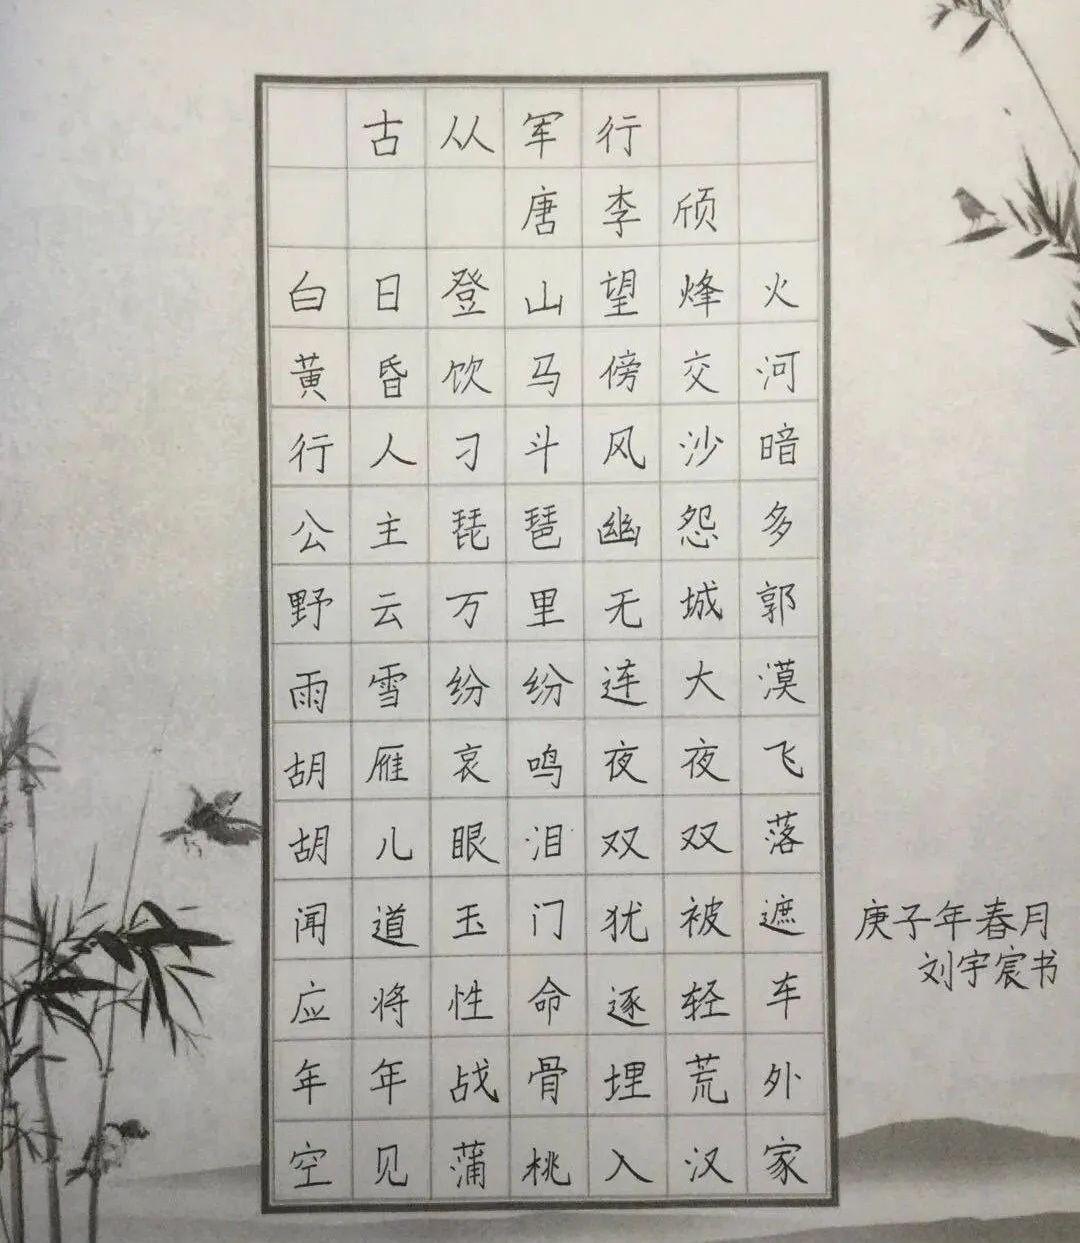 古从军行
唐李颀
白日登山望烽火
黄昏饮马傍交河
行人刁斗风沙暗
公主琵琶幽怨多
野云万里无城郭
雨雪纷纷连大漠
胡雁哀鸣夜夜飞
胡儿眼泪双双落
闻道玉门犹被遮
应将性命逐轻车
年年战骨埋荒外
空见蒲桃入汉家
庚子年春月
刘宇宸书